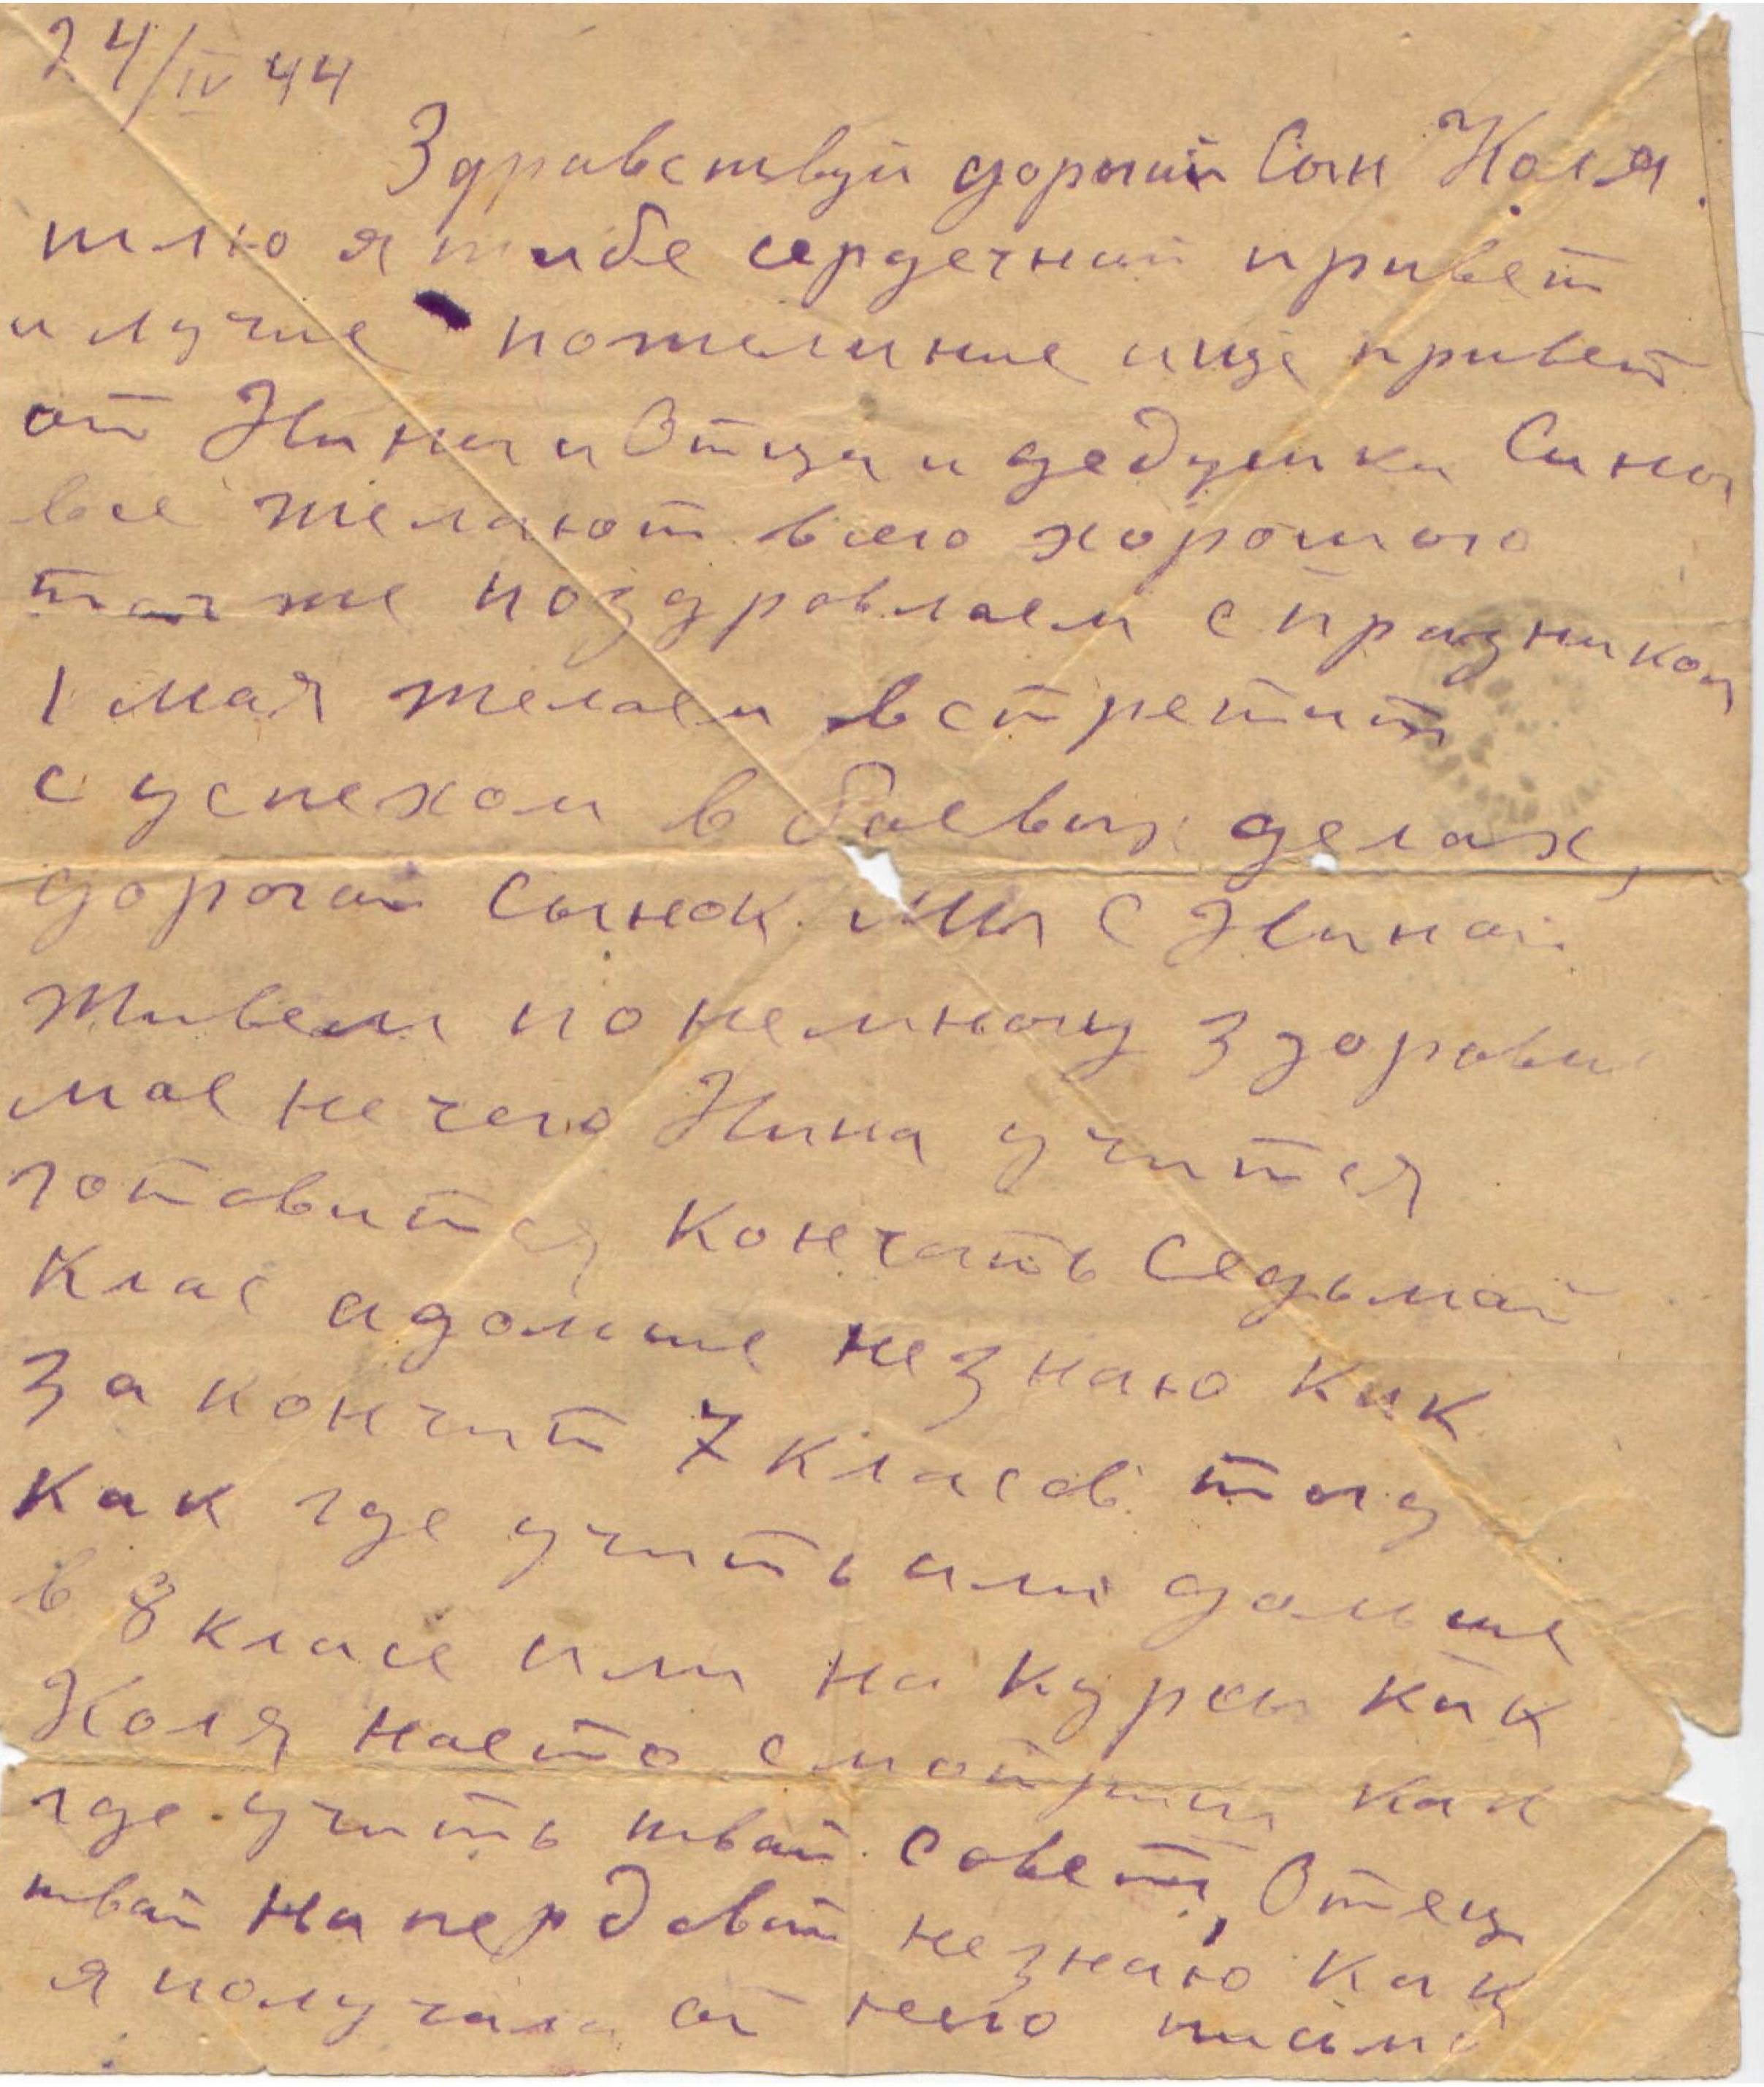 24/IV 44
Здравствуй дорогой Сын Коля.
шлю я тибе сердечный привет
и лучие пожелиние ище привет
от Нины и Отца и дедушки Сины
все желают всего хорошого
также поздровлаем с празником
1 мая желаем встретит
с успехом в боевых делах,
дорогой Сынок. мы С Ниной
живем понемногу здоровие
мое не чего Нина учится
готовится кончать Седьмой
Клас а дольше незнаю как
закончит 7 класов
как где учить или дольше
в 8 класе или на курсы как
Коля на ето смотриш как
где учить твой совет, Отец
твой незнаю как
я получила от него писмо